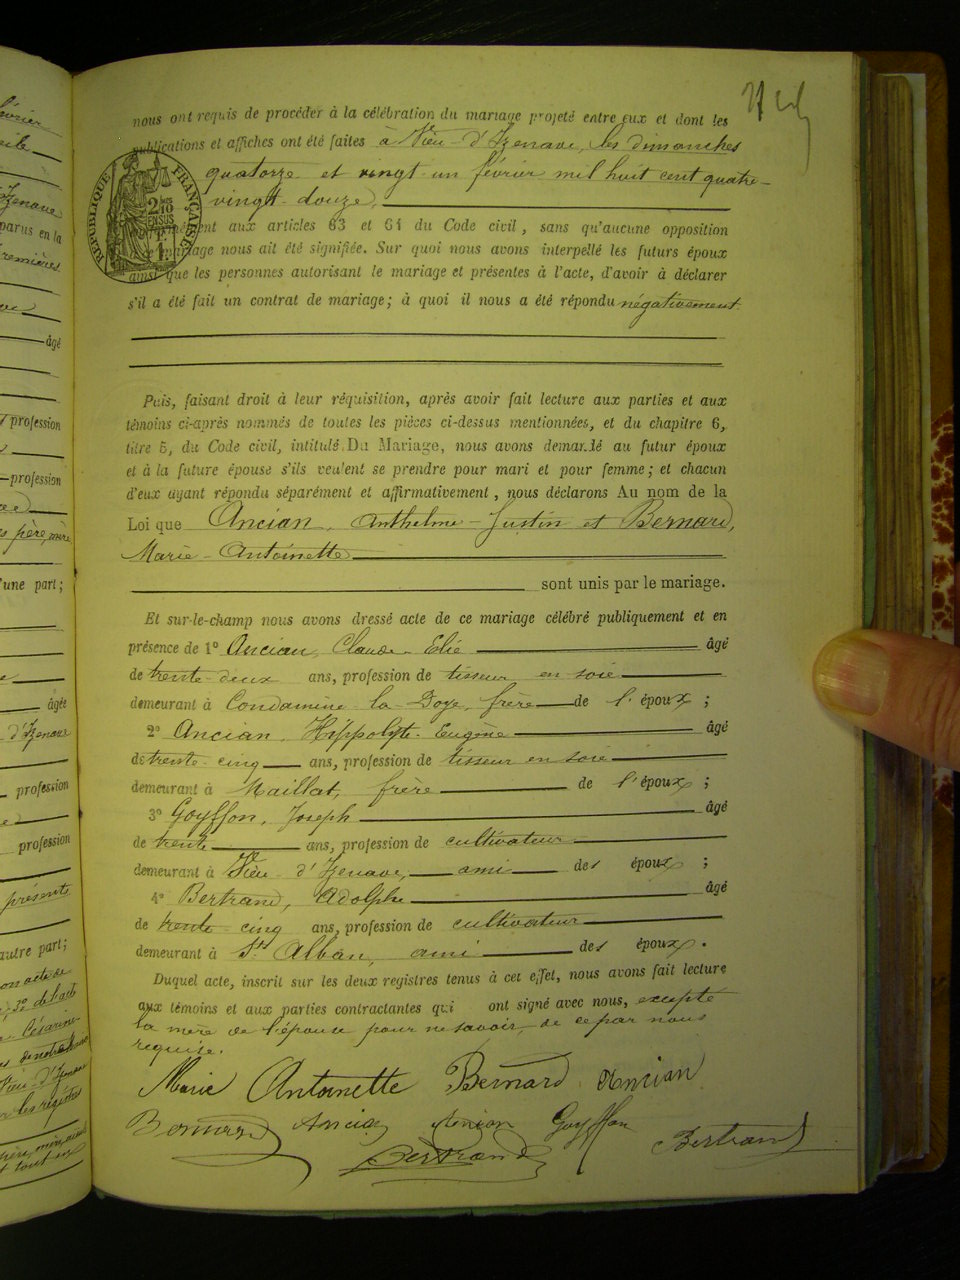 nous ont requis de procéder à la célébration du mariage projeté entre eux et dont les
publications et affiches ont été faites à Vieu-d'Izenave, les dimanches
quatorze et vingt-un février mil huit cent quatre-
vingt-douze,
aux articles 63 et 64 du Code civil, sans qu'aucune opposition
mariage nous ait été signifiée. Sur quoi nous avons interpellé les futurs époux
ainsi que les personnes autorisant le mariage et présentes à l'acte, d'avoir à déclarer
s'il a été fait un contrat de mariage; à quoi il nous a été répondu négativement.
RÉPUBLIQUE FRANÇAISE
Puis, faisant droit à leur réquisition, après avoir fait lecture aux parties et aux
témoins ci-après nommés de toutes les pièces ci-dessus mentionnées, et du chapitre 6,
titre 5, du Code civil, intitulé Du Mariage, nous avons demandé au futur époux
et à la future épouse s'ils veulent se prendre pour mari et pour femme; et chacun
d'eux ayant répondu séparément et affirmativement, nous déclarons Au nom de la
Loi que Ancian, Anthelme-Justin et Bernard,
Marie-Antoinette
sont unis par le mariage.
Et sur-le-champ nous avons dressé acte de ce mariage célébré publiquement et en
présence de 1° Ancian, Claude-Elie âgé
de trente-deux ans, profession de tisseur en soie
demeurant à Condamine-la-Doye, frère de l'époux;
2° Ancian, Hippolyte-Eugène âgé
de trente-cinq ans, profession de tisseur en soie
demeurant à Maillat, frère de l'époux;
3° Goyffon, Joseph âgé
de trente ans, profession de cultivateur
demeurant à Vieu-d'Izenave, ami des époux;
4° Bertrand, Adolphe âgé
de trente cinq ans, profession de cultivateur
demeurant à St Alban, ami des époux.
Duquel acte, inscrit sur les deux registres tenus à cet effet, nous avons fait lecture
aux témoins et aux parties contractantes qui ont signé avec nous, excepté
la mère de l'épouse pour ne savoir, de ce par nous
requise.
Marie Antoinette Bernard Ancian
Bernard Ancian Ancian Goyffon
Bertrand Bertrand